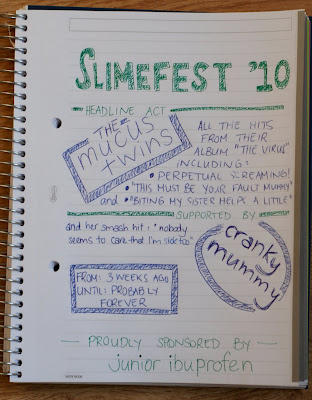 SLIMEFEST '10
HEADLINE ACT
THE
mucus
twins
ALL THE HITS
FROM THEIR
ALBUM "THE VIRUS"
INCLUDING:
• PERPETUAL SCREAMING!
• "THIS MUST BE YOUR FAULT MUMMY"
and • "BITING MY SISTER HELPS A LITTLE"
SUPPORTED BY
and her smash hit: "nobody
seems to care that I'm sick too"
cranky
mummy
FROM: 3 WEEKS AGO
UNTIL: PROBABLY
FOREVER
PROUDLY SPONSORED BY
junior ibuprofen